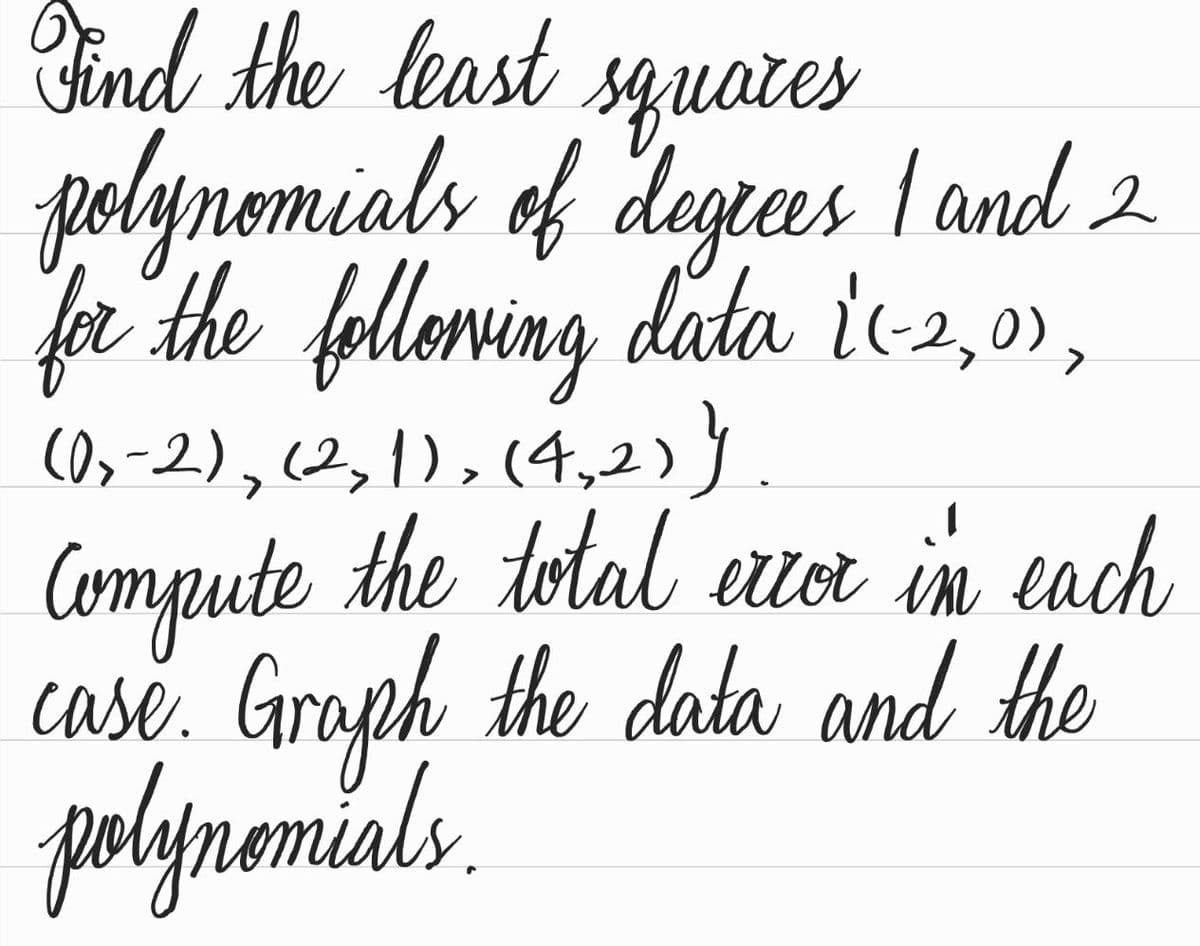 Find the least squares
polynomials of degrees 1 and 2
for the following data {(-2, 0),
(0, -2), (2, 1), (4, 2)}.
Compute the total error in each
case. Graph the data and the
polynomials.